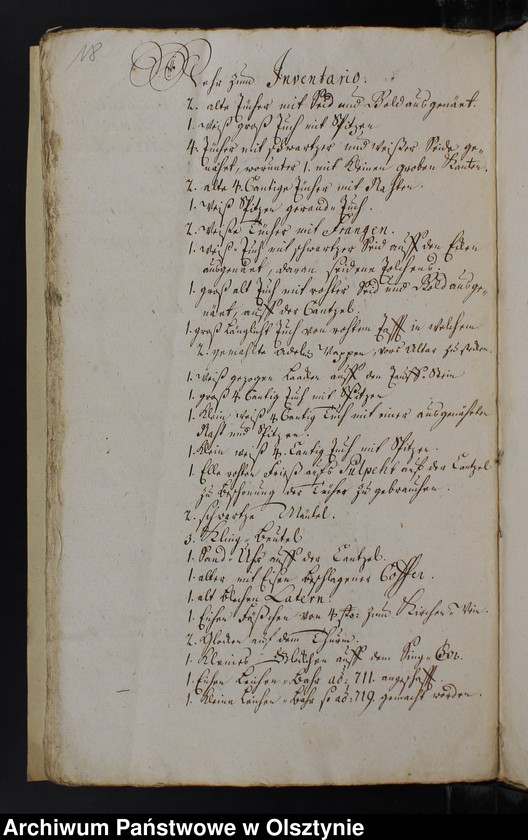 18
Mehr zum Inventario.
2. alte Tücher mit Seid und Gold ausgenärt.
1. weiß groß Tuch mit Spitzen
4. Tücher mit schwartzer und weißer Seide ge-
nähet, worunter 1. mit kleinen groben Kanten.
2. alte 4. Cantige Tücher mit Nahten.
1. weiß Spitzen Tuch.
2. weiße Tücher mit Frangen.
1. weiß Tuch mit schwartzer Seid auff den Ecken
ausgenäet, daran seidene
1. groß alt Tuch mit rohter Seid und Gold ausge-
näet, auff der Cantzel.
1. groß länglicht Tuch von rohten Tafft in welchem
2. gemahlte Adeliche Wappen, vors Altar zu
1. weiß gezogen Laaken auff den Tauff-Stein
1. groß 4. Cantig Tuch mit Spitzen
1. klein weiß 4. Cantig Tuch mit einer ausgenähten
Naht und Spitzen.
1. klein weiß 4. Cantig Tuch mit Spitzen.
1. Elle rohten Frieß auffs Pulpeht auff der Cantzel
zu Beschonung der Tücher zu gebrauchen.
2. schwartze Mäntel.
3. Kling-Beutel
1. Sand-Uhr auff der Cantzel.
1. alter mit Eisen beschlagener Coffer.
1. alt blechen Latern.
1. Eichen Fäßchen von 4. Sto: zum Kirchen-Wein.
2. Glocken auf dem Thurm.
1. Kleines Glöckchen auff dem Sing-Cor.
1. Eichen Leichen-Bahr aõ: 711. angeschafft.
1. Kleine Leichen-Bahr so aõ: 719. gemacht worden.
Archiwum Państwowe w Olsztynie